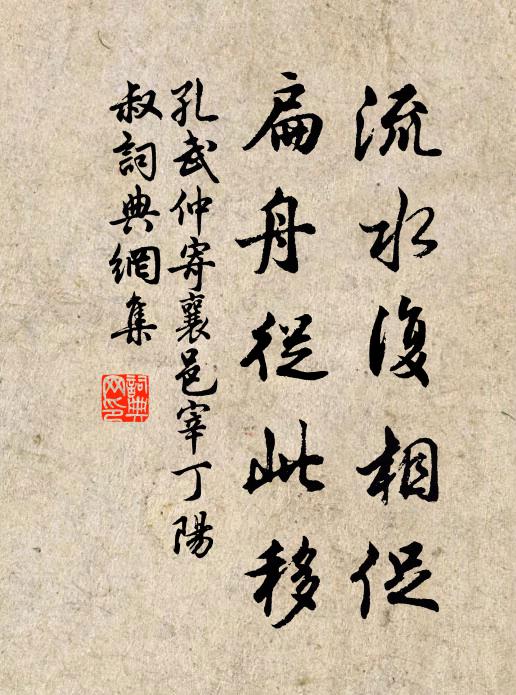 流水復相促
扁舟從此移
孔武仲寄襄邑宰丁陽
叔詞典網集
詞典网印